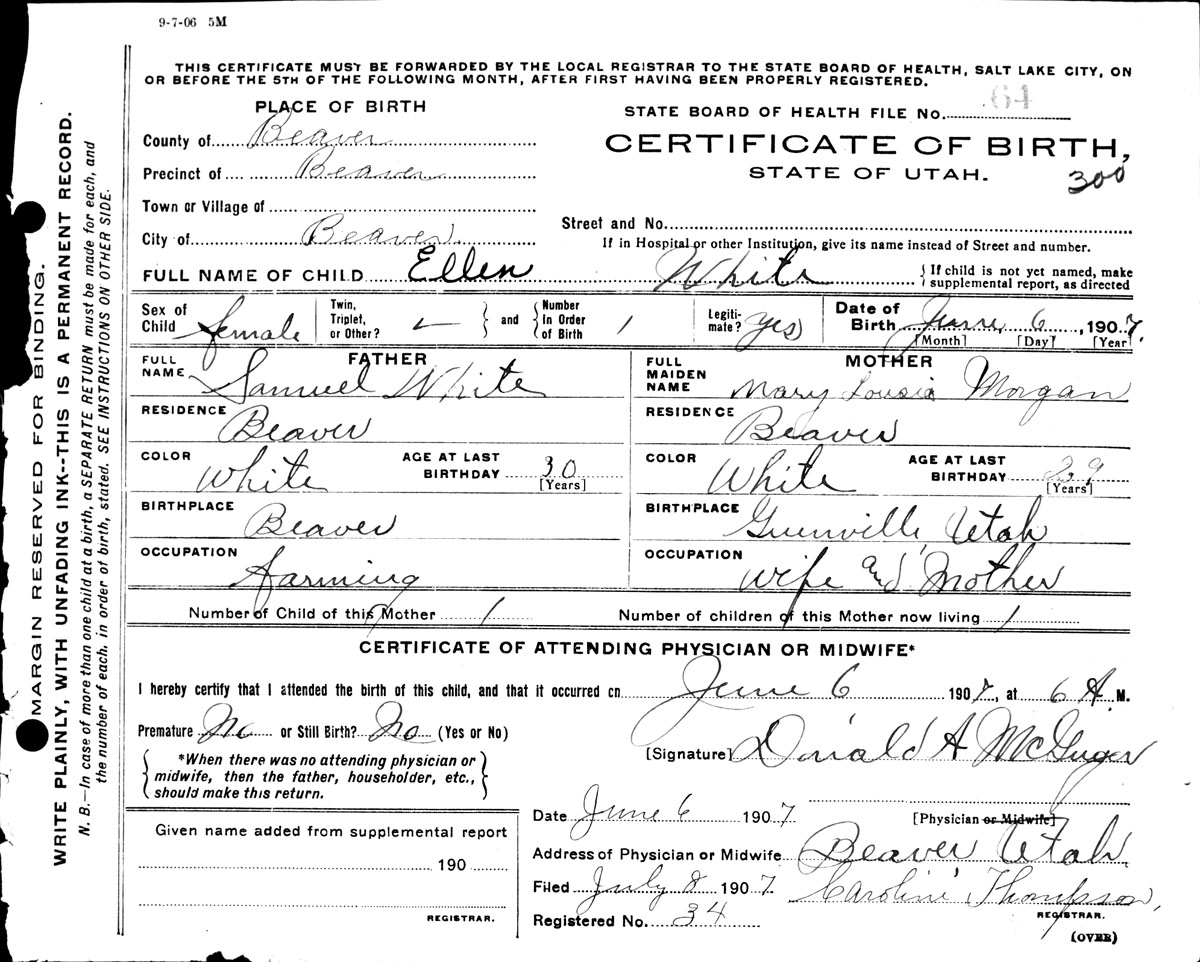 9-7-06 5M
THIS CERTIFICATE MUST BE FORWARDED BY THE LOCAL REGISTRAR TO THE STATE BOARD OF HEALTH, SALT LAKE CITY, ON
OR BEFORE THE 5TH OF THE FOLLOWING MONTH, AFTER FIRST HAVING BEEN PROPERLY REGISTERED.
MARGIN RESERVED FOR BINDING.
WRITE PLAINLY, WITH UNFADING INK--THIS IS A PERMANENT RECORD.
N. B.—In case of more than one child at a birth, a SEPARATE RETURN must be made for each, and
the number of each, in order of birth, stated. SEE INSTRUCTIONS ON OTHER SIDE.
PLACE OF BIRTH
County of Beaver
Precinct of Beaver
Town or Village of
City of Beaver
STATE BOARD OF HEALTH FILE NO. 64
CERTIFICATE OF BIRTH,
STATE OF UTAH.
300
Street and No.
If in Hospital or other Institution, give its name instead of Street and number.
FULL NAME OF CHILD Ellen White
If child is not yet named, make
supplemental report, as directed
Sex of Child female
Twin, Triplet, or Other? and Number In Order of Birth 1
Legitimate? yes
Date of Birth June 6, 1907.
[Month] [Day] [Year]
FATHER
FULL NAME Samuel White
RESIDENCE Beaver
COLOR White AGE AT LAST BIRTHDAY 30 [Years]
BIRTHPLACE Beaver
OCCUPATION Farming
MOTHER
FULL MAIDEN NAME Mary Lousia Morgan
RESIDENCE Beaver
COLOR White AGE AT LAST BIRTHDAY 29 [Years]
BIRTHPLACE Greenville, Utah
OCCUPATION Wife and Mother
Number of Child of this Mother 1 Number of children of this Mother now living 1
CERTIFICATE OF ATTENDING PHYSICIAN OR MIDWIFE*
I hereby certify that I attended the birth of this child, and that it occurred on June 6 1907, at 6 A.M.
Premature No or Still Birth? No (Yes or No)
*When there was no attending physician or
midwife, then the father, householder, etc.,
should make this return.
[Signature] Donald A
Date June 6 1907
[Physician or Midwife]
Address of Physician or Midwife Beaver, Utah
Filed July 8 1907 Caroline Thompson,
REGISTRAR.
Registered No. 34
(OVER)
Given name added from supplemental report
190
REGISTRAR.